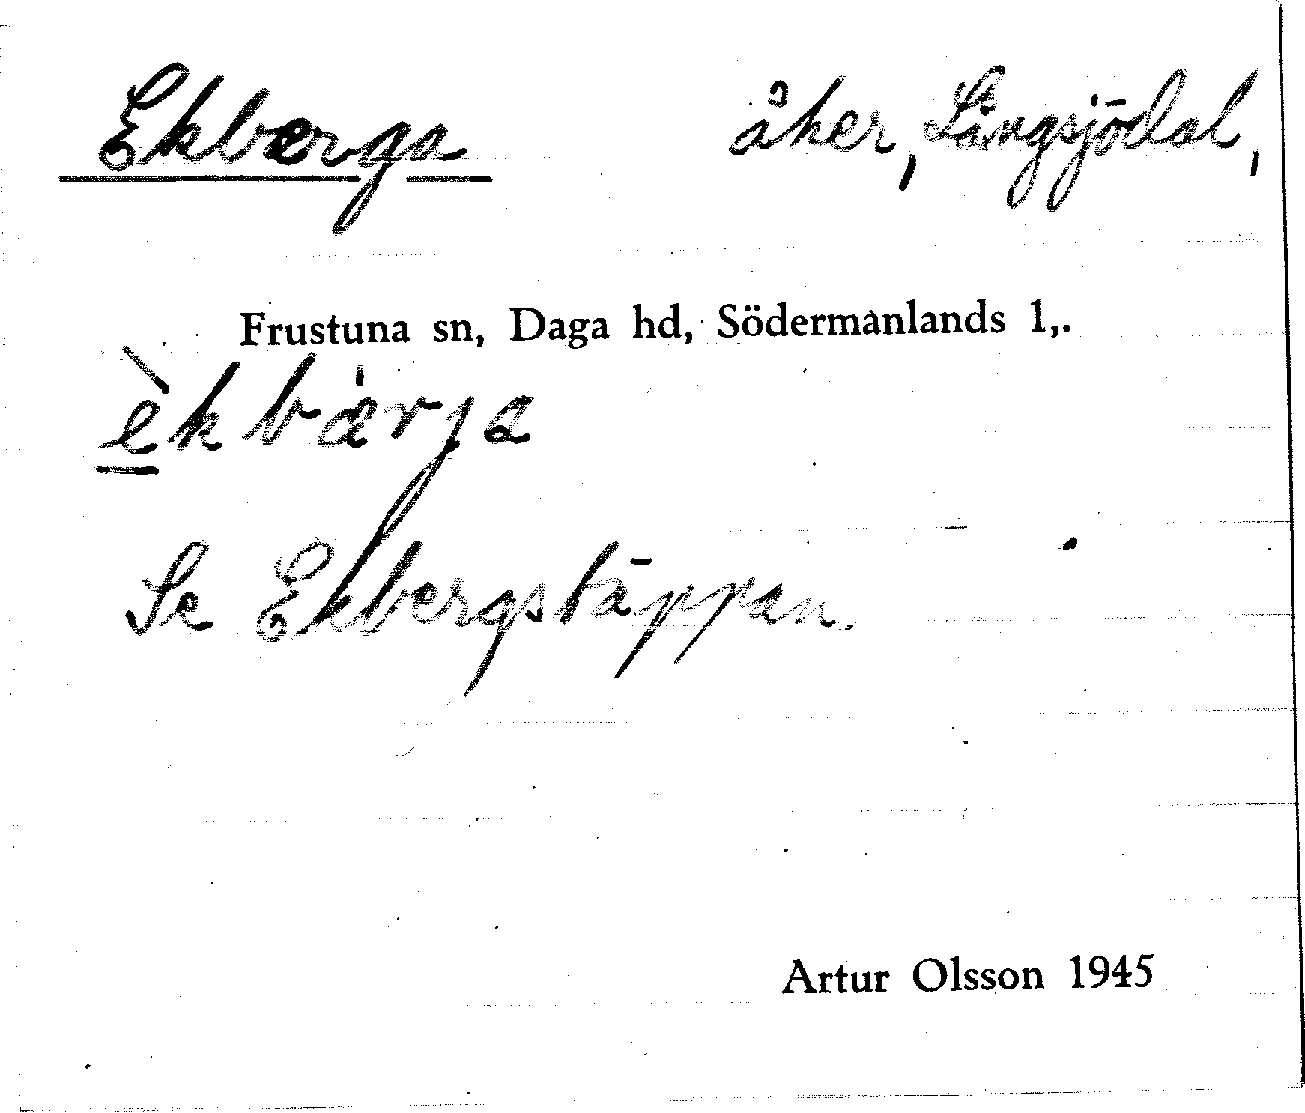 Ekberga åker, Långsjödal,
Frustuna sn, Daga hd, Södermanlands l,.
èkbærja
Se Ekbergstäppan.
Artur Olsson 1945